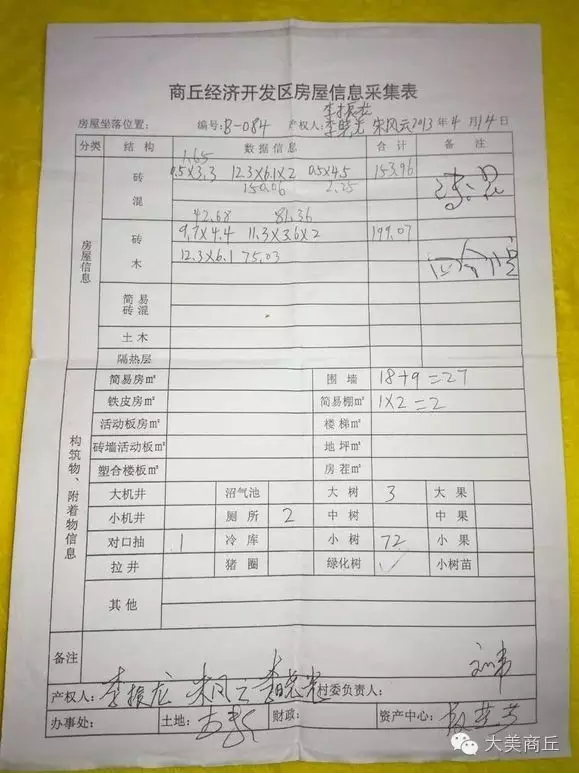 商丘经济开发区房屋信息采集表
李振龙
房屋坐落位置: 编号:B-084 产权人: 李晓光 宋风云 2013年4月14日
分类 结构 数据信息 合计 备注
1.65
砖混 0.5X3.3 12.3X6.1X2 0.5X4.5 153.96
150.06 2.25
42.68 81.36
砖木 9.7X4.4 11.3X3.6X2 199.07
12.3X6.1 75.03
房屋信息
简易砖混
土木
隔热层
简易房㎡ 围墙 18+9=27
铁皮房㎡ 简易棚㎡ 1X2=2
活动板房㎡ 楼梯㎡
砖墙活动板㎡ 地坪㎡
塑合楼板㎡ 房茬㎡
构筑物、附着物信息
大机井 沼气池 大树 3 大果
小机井 厕所 2 中树 中果
对口抽 1 冷库 小树 72 小果
拉井 猪圈 绿化树 ✓ 小树苗
其他
备注
产权人: 李振龙 宋风云 李晓光 村委负责人:
办事处: 土地: 财政: 资产中心:
大美商丘